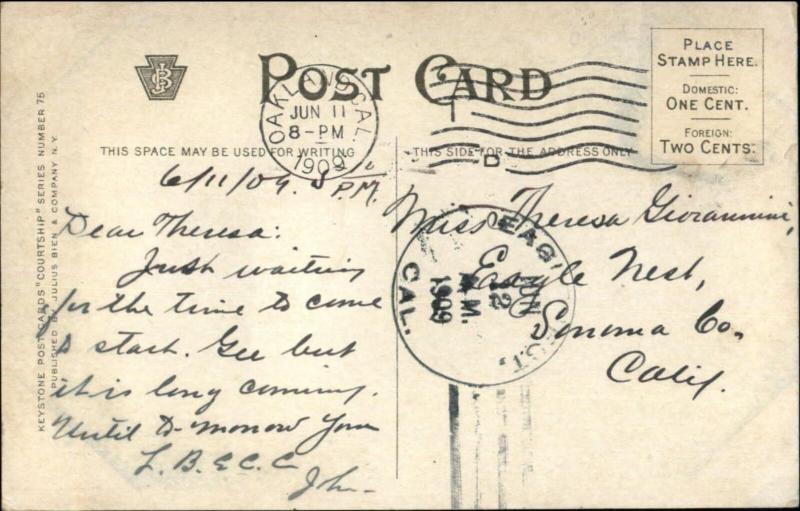 POST CARD
PLACE
STAMP HERE.
DOMESTIC:
ONE CENT.
FOREIGN:
TWO CENTS.
OAKLAND, CAL.
JUN 11
8-PM
1909
THIS SPACE MAY BE USED FOR WRITING
THIS SIDE FOR THE ADDRESS ONLY
D
KEYSTONE POST CARDS "COURTSHIP" SERIES NUMBER 75
PUBLISHED BY JULIUS BIEN & COMPANY N.Y.
6/11/09. 8
P.M.
Dear Theresa:
Just waiting
for the time to come
to start. Gee but
it is long coming.
Until to-morrow Your
L. B. & C. C.
John-
Miss Theresa Giovannini,
Eagle Nest,
Sonoma Co.,
Calif.
EAGLE NEST,
JUN
12
A.M.
1909
CAL.